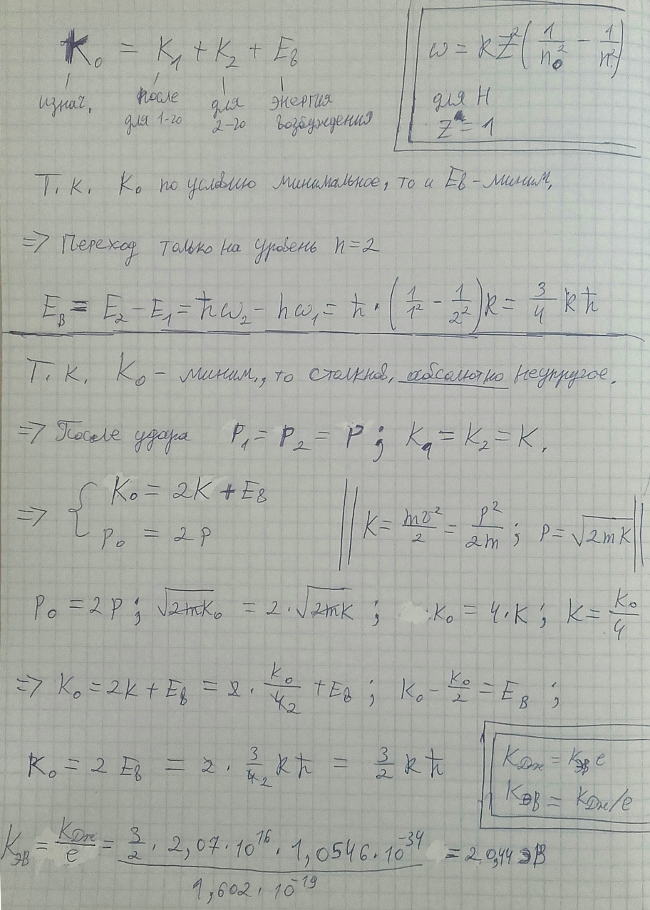 K₀ = K₁ + K₂ + Eв
изнач. после для 1-го для 2-го энергия возбуждения
ω = RZ²(1/n₀² - 1/n²)
для H
Z = 1
Т.к. K₀ по условию минимальное, то и Eв - миним.
=> Переход только на уровень n=2
Eв = E₂ - E₁ = ħω₂ - ħω₁ = ħ · (1/1² - 1/2²)R = 3/4 Rħ
Т.к. K₀ - миним., то столкнов. абсолютно неупругое.
=> После удара P₁ = P₂ = P; K₁ = K₂ = K.
=> { K₀ = 2K + Eв
P₀ = 2P
K = mv²/2 = P²/2m; P = √2mK
P₀ = 2P; √2mK₀ = 2·√2mK; K₀ = 4·K; K = K₀/4
=> K₀ = 2K + Eв = 2 · K₀/4₂ + Eв; K₀ - K₀/2 = Eв;
K₀ = 2 Eв = 2 · 3/4₂ Rħ = 3/2 Rħ
Kдж = Kэв e
Kэв = Kдж/e
Kэв = Kдж/e = 3/2 · 2,07·10¹⁶ · 1,0546·10⁻³⁴ / 1,602·10⁻¹⁹ = 20,44 эВ